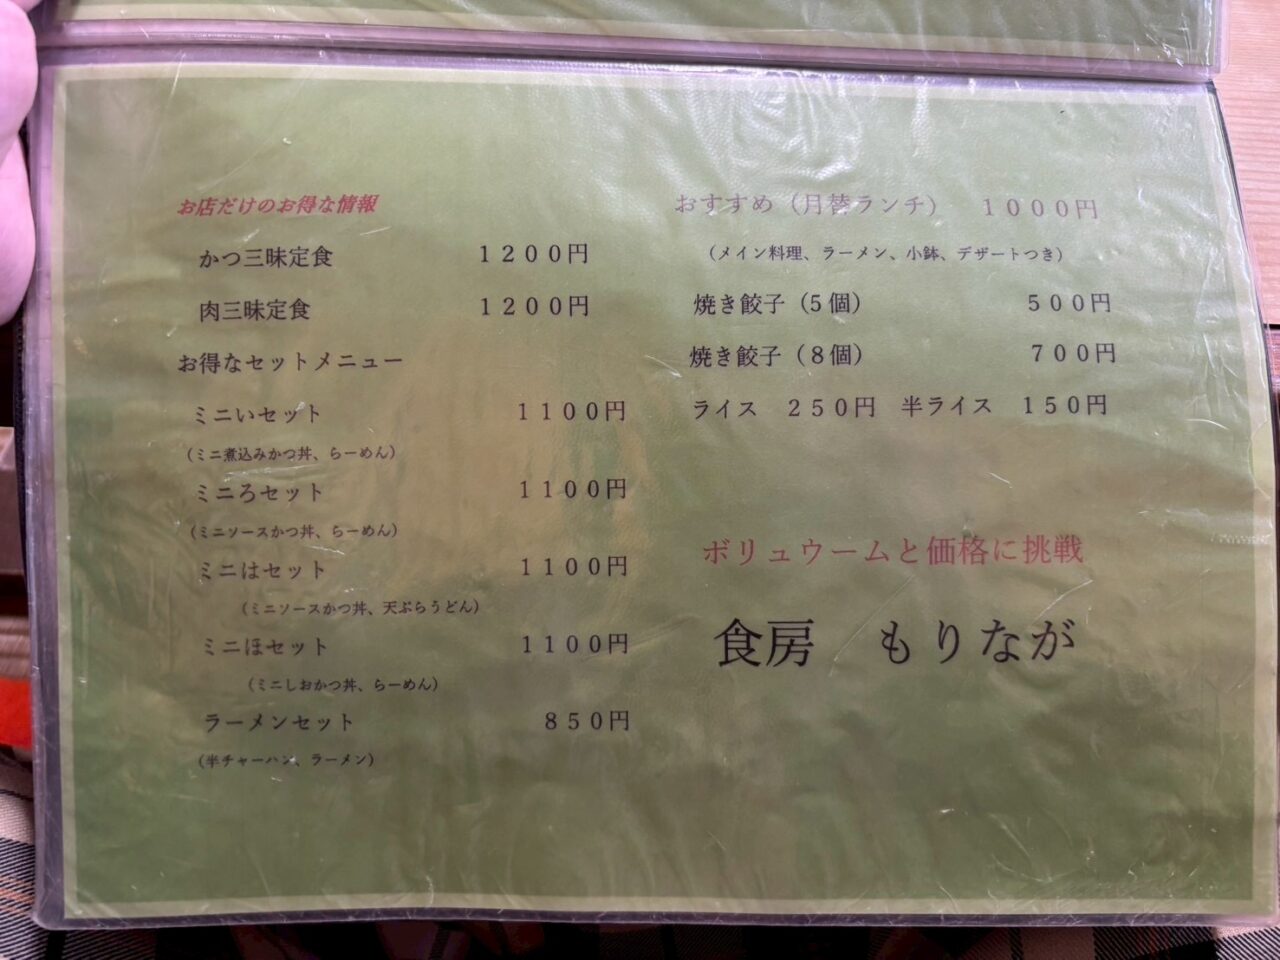 お店だけのお得な情報
かつ三昧定食 1200円
肉三昧定食 1200円
お得なセットメニュー
ミニいセット 1100円
（ミニ煮込みかつ丼、らーめん）
ミニろセット 1100円
（ミニソースかつ丼、らーめん）
ミニはセット 1100円
（ミニソースかつ丼、天ぷらうどん）
ミニほセット 1100円
（ミニしおかつ丼、らーめん）
ラーメンセット 850円
（半チャーハン、ラーメン）
おすすめ（月替ランチ） 1000円
（メイン料理、ラーメン、小鉢、デザートつき）
焼き餃子（5個） 500円
焼き餃子（8個） 700円
ライス 250円 半ライス 150円
ボリュウームと価格に挑戦
食房 もりなが